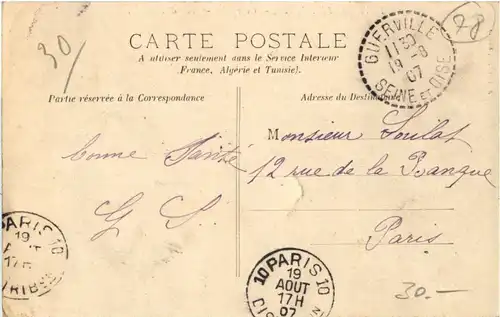 30
CARTE POSTALE
78
A utiliser seulement dans le Service Intérieur
(France, Algérie et Tunisie).
GUERVILLE
11 30
19 -8
07
SEINE ET OISE
Partie réservée à la Correspondance
Adresse du Destinataire
bonne Santé
G S.
Monsieur Soulat
12 rue de la Banque
Paris
PARIS 10
19
AOUT
17H
10 PARIS 10
19
AOUT
17H
07
30.-